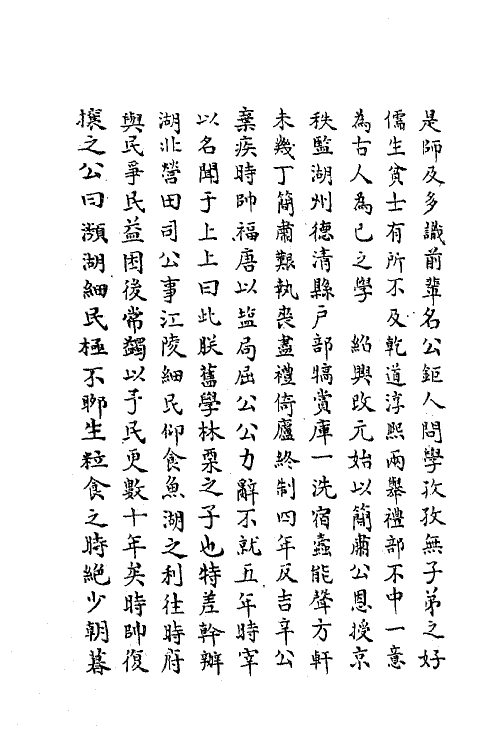 是師及多識前輩名公鉅人問學孜孜無子弟之好
儒生貧士有所不及乾道淳熙兩舉禮部不中一意
為古人為己之學　紹興改元始以簡肅公恩授京
秩監湖州德清縣戶部犒賞庫一洗宿蠹能聲方軒
未幾丁簡肅艱執喪盡禮倚廬終制四年反吉辛公
棄疾時帥福唐以鹽局屈公公力辭不就五年時宰
以名聞于上上曰此朕舊學林栗之子也特差幹辦
湖北營田司公事江陵細民仰食魚湖之利往時府
與民爭民益困後常蠲以予民更數十年矣時帥復
攘之公曰瀕湖細民極不聊生粒食之時絕少朝暮